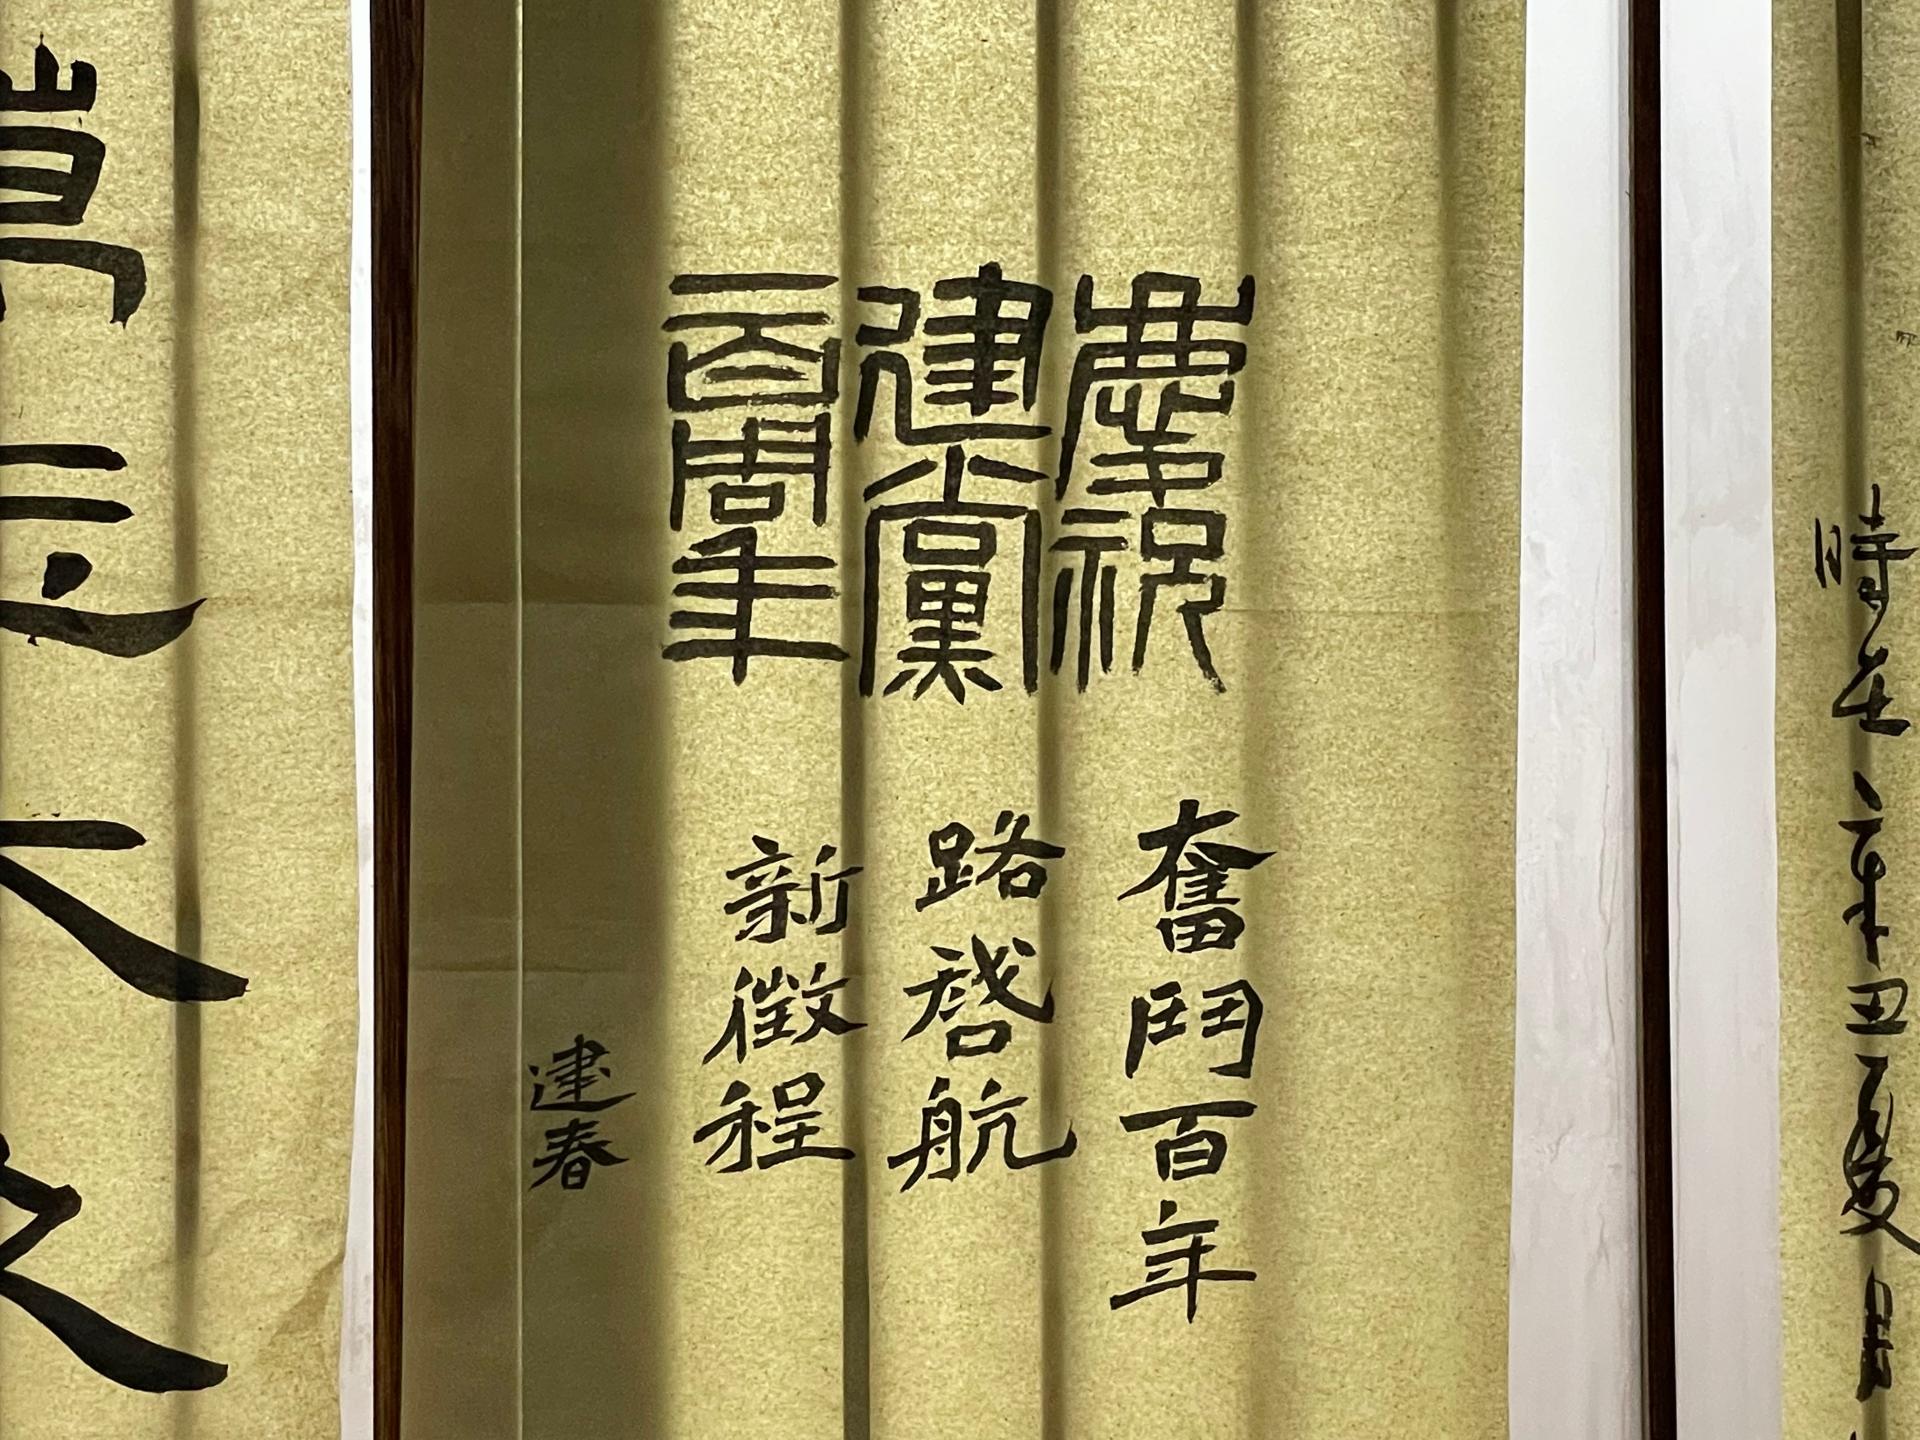 慶祝
建黨
百周年
奮鬥百年
路啓航
新徵程
建春
時在辛丑夏月